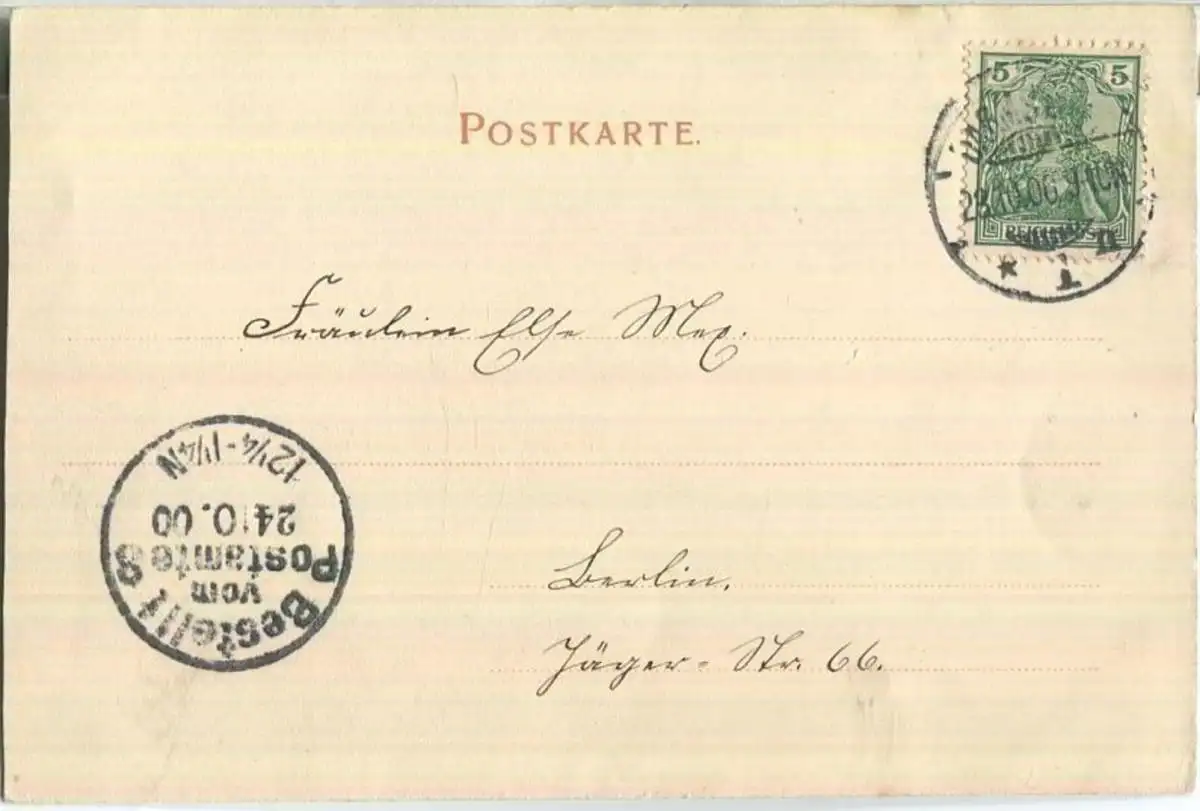 POSTKARTE.
5 5
REICHSPOST
23.10.00. 9-10N
Fräulein Else Mex.
12¼-1¼N
24.10.00
Bestellt
vom
Postamte 8
Berlin.
Jäger-Str. 66.